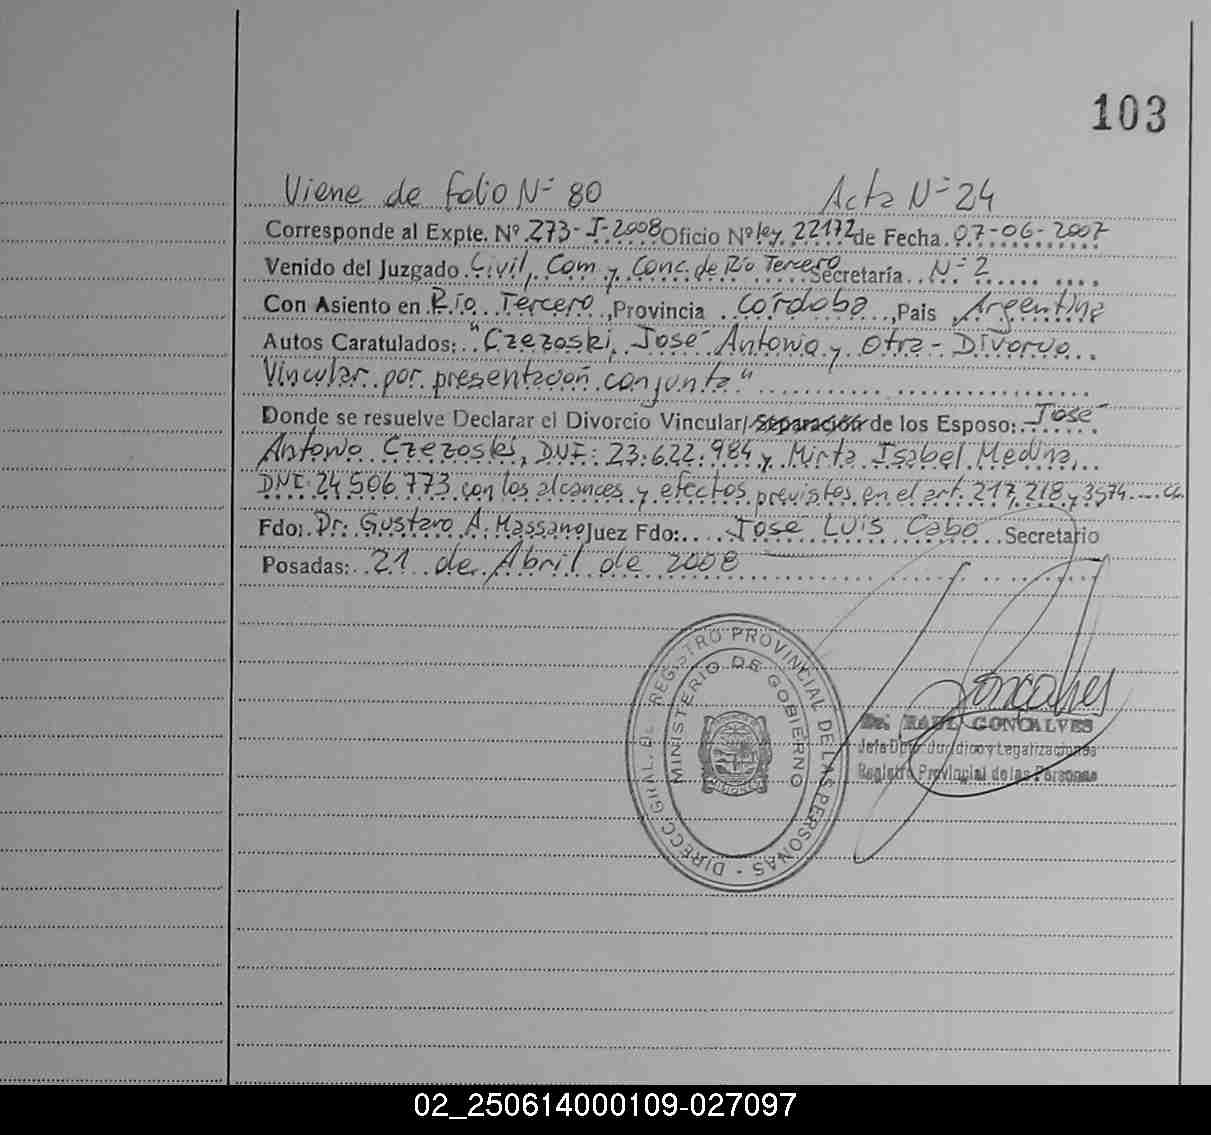 103
Viene de folio N° 80 Acta N° 24
Corresponde al Expte. Nº 273-I-2008 Oficio Nº ley 22172 de Fecha 07-06-2007
Venido del Juzgado Civil, Com y Conc. de Río Tercero Secretaría N° 2
Con Asiento en Río Tercero, Provincia Córdoba, Pais Argentina
Autos Caratulados: "Czezoski, José Antonio y Otra - Divorcio
Vincular por presentación conjunta"
Donde se resuelve Declarar el Divorcio Vincular/Separación de los Esposo: José
Antonio Czezoski, DNI: 23.622.984 y Mirta Isabel Medina,
DNI: 24506773 con los alcances y efectos previstos en el art. 217, 218 y 3574
Fdo: Dr. Gustavo A. Massano Juez Fdo: José Luis Cabo Secretario
Posadas: 21 de Abril de 2008
DIRECC. GRAL. DEL REGISTRO PROVINCIAL DE LAS PERSONAS -
MINISTERIO DE GOBIERNO
MISIONES
Goncalves
Dr. RAUL GONCALVES
Jefe Dpto Jurídico y Legalizaciones
Registro Provincial de las Personas
02_250614000109-027097